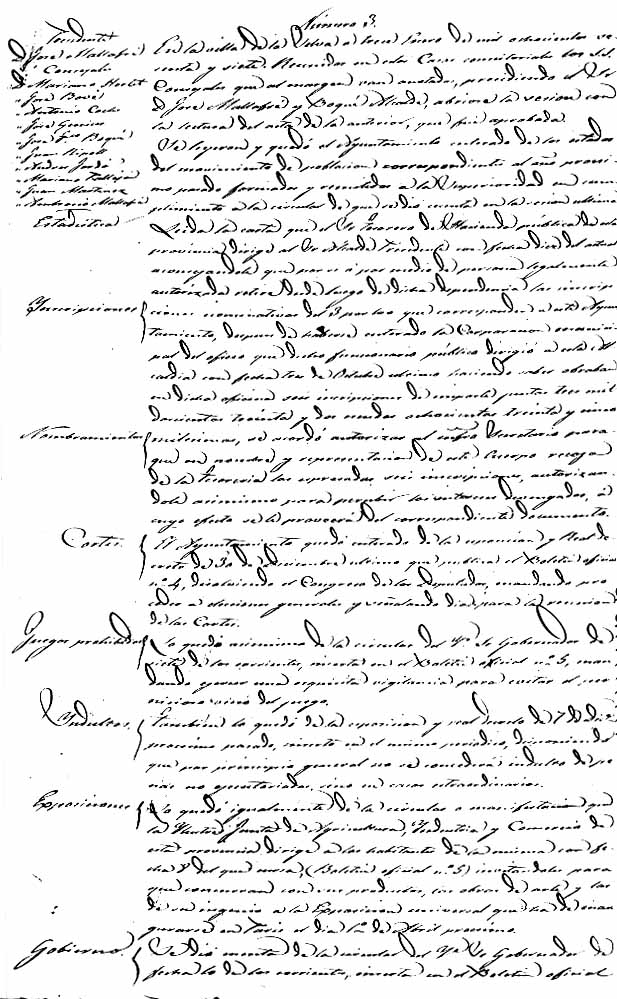 Número 3.
Presidente
D. José Mallafré
Concejales
D. Mariano Hortet
José Bové
Antonio
José
José Fco Boqué
Juan Ripoll
Mariano
Juan Martorell
Mallafré
En la villa de la Selva a trece Enero de mil ochocientos se-
senta y siete. Reunidos en esta Casa consistorial los S.S.
Concejales que al margen van anotados, presidiendo el Sr.
D. José Mallafré y Boqué Alcalde, abriose la sesion con
la lectura del acta de la anterior, que fué aprobada.
Estadistica
Se leyeron y quedó el Ayuntamiento enterado de los estados
del movimiento de poblacion correspondiente al año proxi-
mo pasado formados y remitidos a la Superioridad en cum-
plimiento a la circular de que se dio cuenta en la sesion ultima
Inscripciones
Leida la carta que el Sr. Tesorero de Hacienda pública de esta
provincia dirige al Sr. Alcalde Presidente con fecha diez del actual
aconsejandole que pase ó por medio de persona legalmente
autorizada retire desde luego de dicha dependencia las inscrip-
ciones nominativas del 3 por ciento que corresponden a este Ayun-
tamiento, despues de haberse enterado la Corporacion munici-
pal del oficio que dicho funcionario público dirigió a esta Al-
caldia con fecha tres de Octubre ultimo haciendo saber obraban
en dicha oficina seis inscripciones de importe juntas tres mil
doscientos treinta y dos escudos ochocientas treinta y cinco
Nombramientos
milesimas, se acordó autorizar al Secretario para
que en nombre y representacion de este Cuerpo recoja
de la Tesoreria las espresadas seis inscripciones, autorizan-
dole asimismo para percibir los intereses devengados, á
cuyo efecto se le proveerá del correspondiente documento.
Cortes.
El Ayuntamiento quedó enterado de la esposicion y Real de-
creto de 30 de Diciembre ultimo que publica el Boletin oficial
nº 4, disolviendo el Congreso de los Diputados, mandando pro-
ceder a elecciones generales y señalando dia para la reunion
de las Cortes.
Juegos prohibidos
Lo quedó asimismo de la circular del Yº Sr. Gobernador de
siete de los corrientes, inserta en el Boletin oficial nº 5, man-
dando ejercer una esquisita vigilancia para cortar el per-
nicioso vicio del juego.
Indultos.
Tambien lo quedó de la esposicion y real decreto de 7 de Dicre
proximo pasado, inserto en el mismo periodico, disponiendo
que por principio general no se concedan indultos de pe-
nas no ejecutoriadas, sino en casos estraordinarios.
Exposiciones
Lo quedó igualmente de la circular o manifestacion que
la Junta de Agricultura, Industria y Comercio de
esta provincia dirige a los habitantes de la misma con fe-
cha 8 del que cursa, (Boletin oficial nº 5) invitandoles para
que concurran con sus productos, sus obras de arte y las
de su ingenio a la Exposicion universal que ha de inau-
gurarse en Paris el dia 1º de Abril proximo.
Gobierno.
Se dió cuenta de la circular del Yº Sr. Gobernador de
fecha 10 de los corrientes, inserta en el Boletin oficial